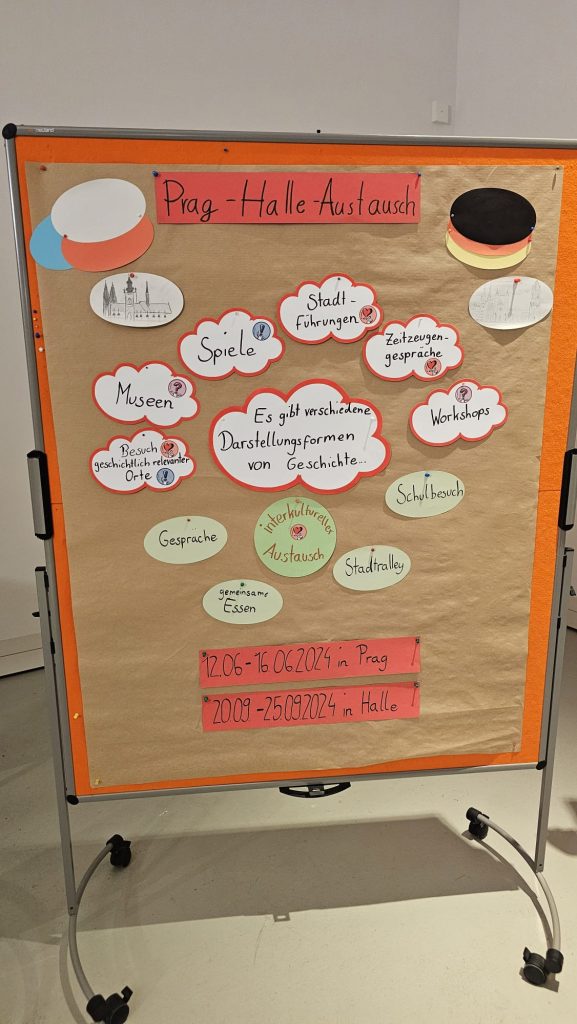 neuland
Prag-Halle-Austausch
Stadt-
Führungen
Spiele
Zeitzeugen-
gespräche
Museen
Workshops
Es gibt verschiedene
Darstellungsformen
von Geschichte...
Besuch
geschichtlich relevanter
Orte
Schulbesuch
interkultureller
Austausch
Gespräche
Stadtralley
gemeinsame
Essen
12.06-16.06.2024 in Prag
20.09-25.09.2024 in Halle